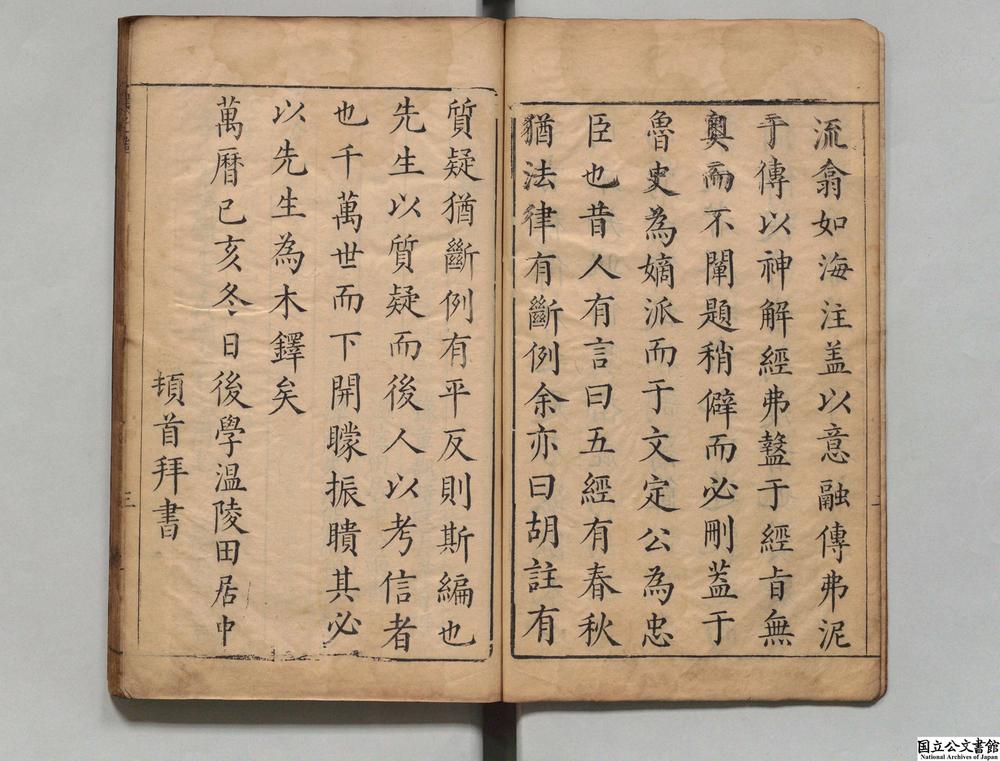 流翕如海注盖以意融傳弗泥
于傳以神解經弗盭于經㫖無
奧而不闡題稍僻而必刪葢于
魯史為嫡派而于文定公為忠
臣也昔人有言曰五經有春秋
猶法律有斷例余亦曰胡註有
質疑猶斷例有平反則斯編也
先生以質疑而後人以考信者
也千萬世而下開矇振聵其必
以先生為木鐸矣
萬曆己亥冬日後學溫陵田居中
頓首拜書
三
国立公文書館
National Archives of Japan